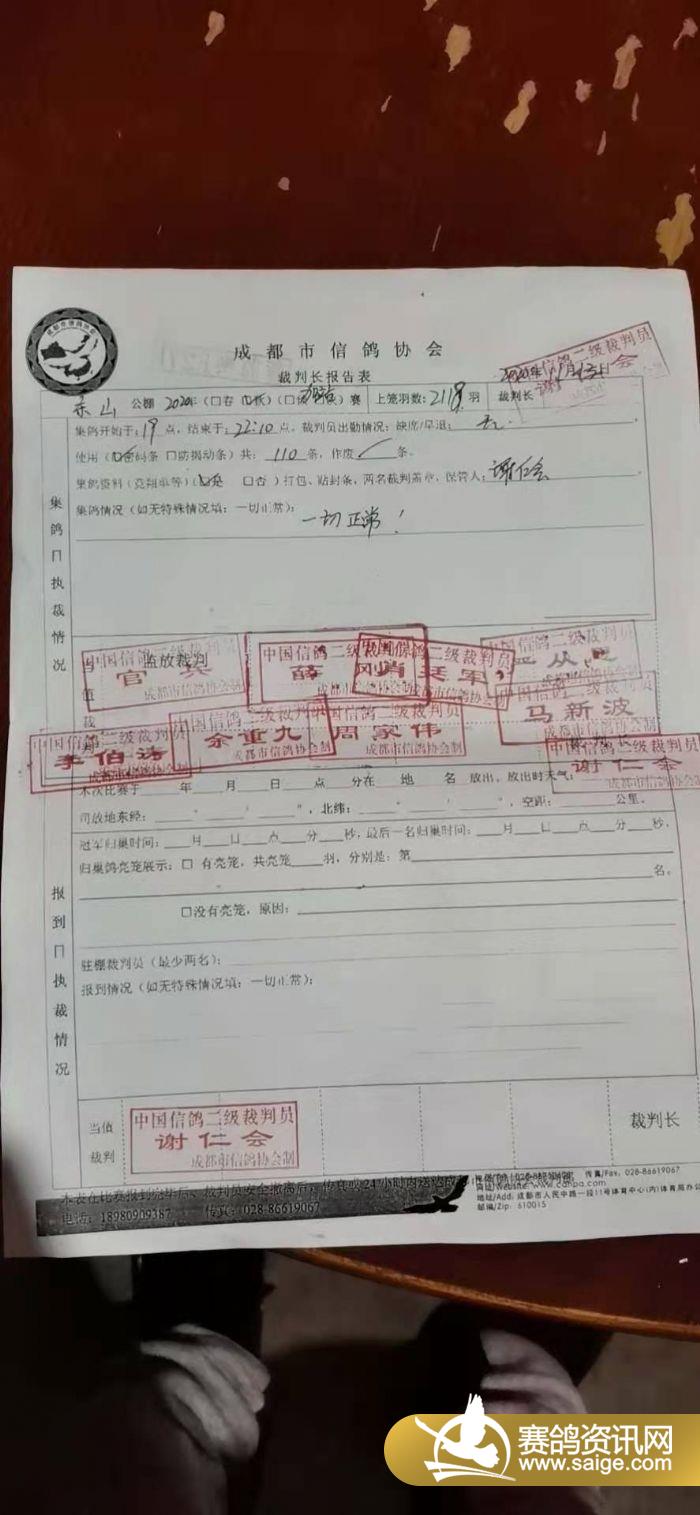 成都市信鸽协会
裁判长报告表
中国信鸽二级裁判员
谢仁会
2020年11月13日
公棚 2020年(口春 口秋)(口预 加站)赛 上笼羽数:2118羽 裁判长
集鸽开始于:19点,结束于:22:10点,裁判员出勤情况:缺席/早退: 无.
使用(口密码条 口防揭动条)共:110条,作废 条.
集鸽资料(竞翔单等)(口是 口否)打包、贴封条,两名裁判盖章,保管人:谢仁会
集鸽情况(如无特殊情况填:一切正常):一切正常!
集鸽口执裁情况
当值裁判
中国信鸽二级裁判员
监放裁判
官兵
成都市信鸽协会制
中国信鸽二级裁判员
薛 刚
中国信鸽二级裁判员
肖廷军
成都市信鸽协会制
信鸽二级裁判员
成都市信鸽协会制
中国信鸽二级裁判员
李伯涛
成都市信鸽协会制
中国信鸽二级裁判员
余重九
成都市信鸽协会制
周家伟
成都市信鸽协会制
中国信鸽二级裁判员
马新波
成都市信鸽协会制
中国信鸽二级裁判员
谢仁会
本次比赛于 年 月 日 点 分在 地 名 放出,放出时天气:
司放地东经: ° ′ ″,北纬: ° ′ ″,空距: 公里.
冠军归巢时间: 月 日 点 分 秒,最后一名归巢时间: 月 日 点 分 秒.
归巢鸽亮笼展示:口 有亮笼,共亮笼 羽,分别是:第
名.
口没有亮笼,原因:
驻棚裁判员(最少两名):
报到情况(如无特殊情况填:一切正常):
报到口执裁情况
当值裁判
中国信鸽二级裁判员
谢仁会
成都市信鸽协会制
裁判长
本表在比赛报到完毕后、裁判员安全撤离后,传真或24小时内送达
电话:18980909387 传真:028-86619067
传真/Fax. 028-86619067
网站/Website: www.cdhpa.com
地址/Add: 成都市人民中路一段11号体育中心(内)体育局办公
邮编/Zip: 610015
赛鸽资讯网
www.saige.com